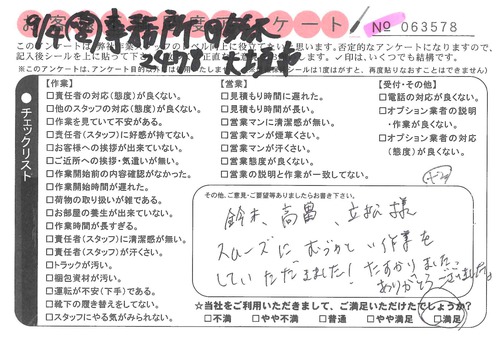 お客様満足度アンケート
№ 063578
9/4(金)事務所
このアンケートは弊社作業スタッフのレベル向上に役立てたいと思います。否定的なアンケートになりますので、
【作業】
□責任者の対応(態度)が良くない。
□他のスタッフの対応(態度)が良くない。
□作業を見ていて不安がある。
□責任者(スタッフ)に好感が持てない。
□お客様への挨拶が出来ていない。
□ご近所への挨拶・気遣いが無い。
□作業開始前の内容確認がなかった。
□作業開始時間が遅れた。
□荷物の取り扱いが雑である。
□お部屋の養生が出来ていない。
□作業時間が長すぎる。
□責任者(スタッフ)に清潔感が無い。
□責任者(スタッフ)が汗くさい。
□トラックが汚い。
□梱包資材が汚い。
□運転が不安(下手)である。
□靴下の履き替えをしてない。
□スタッフにやる気がみられない。
チェックリスト
【営業】
□見積もり時間に遅れた。
□見積もり時間が長い。
□営業マンに清潔感が無い。
□営業マンが煙草くさい。
□営業マンが汗くさい。
□営業態度が良くない。
□営業の説明と作業が一致してない。
【受付・その他】
□電話の対応が良くない。
□オプション業者の説明
・作業が良くない。
□オプション業者の対応
(態度)が良くない。
その他、ご意見・ご要望等ありましたらお書き下さい。
鈴木、高畠、立松 様
スムーズに むづかしい作業を
していただきました! たすかりました。
ありがとうございました。
☆当社をご利用いただきまして、ご満足いただけたでしょうか?
□不満 □やや不満 □普通 □やや満足 □満足